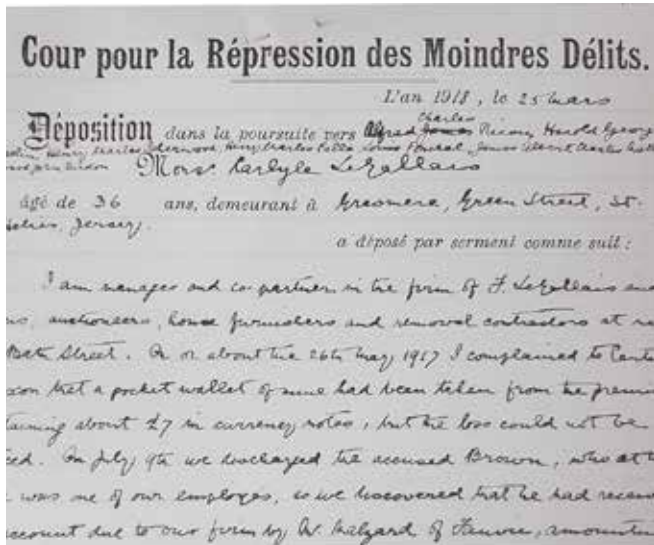 Cour pour la Répression des Moindres Délits.
L'an 1918, le 25 Mars
Charles
Déposition dans la poursuite vers Alfred James Harold George
Henry Charles Henry Charles Louis James Albert Charles
Monsr Carlyle LeGallais
âgé de 36 ans, demeurant à Green Street, St.
Jersey.
a déposé par serment comme suit:
I am manager and co-partner in the firm of F. LeGallais and
auctioneers, house furnishers and removal contractors at
Bath Street. On or about the 26th May 1917 I complained to
that a pocket wallet of mine had been taken from the premi
taining about £7 in currency notes, but the loss could not be
ced. On July 9th we discharged the accused Brown, who at t
was one of our employes, as we discovered that he had recei
account due to our firm by W. Malzard of Fauvic, amountin